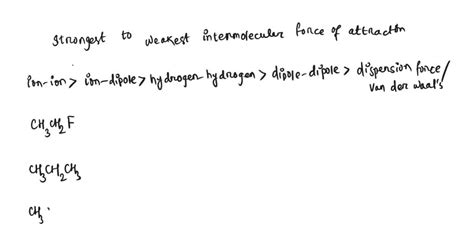 Strongest to weakest intermolecular force of attraction
ion-ion > ion-dipole > hydrogen-hydrogen > dipole-dipole > dispersion force/
van der waal's
CH₃CH₂F
CH₃CH₂CH₃
CH₃